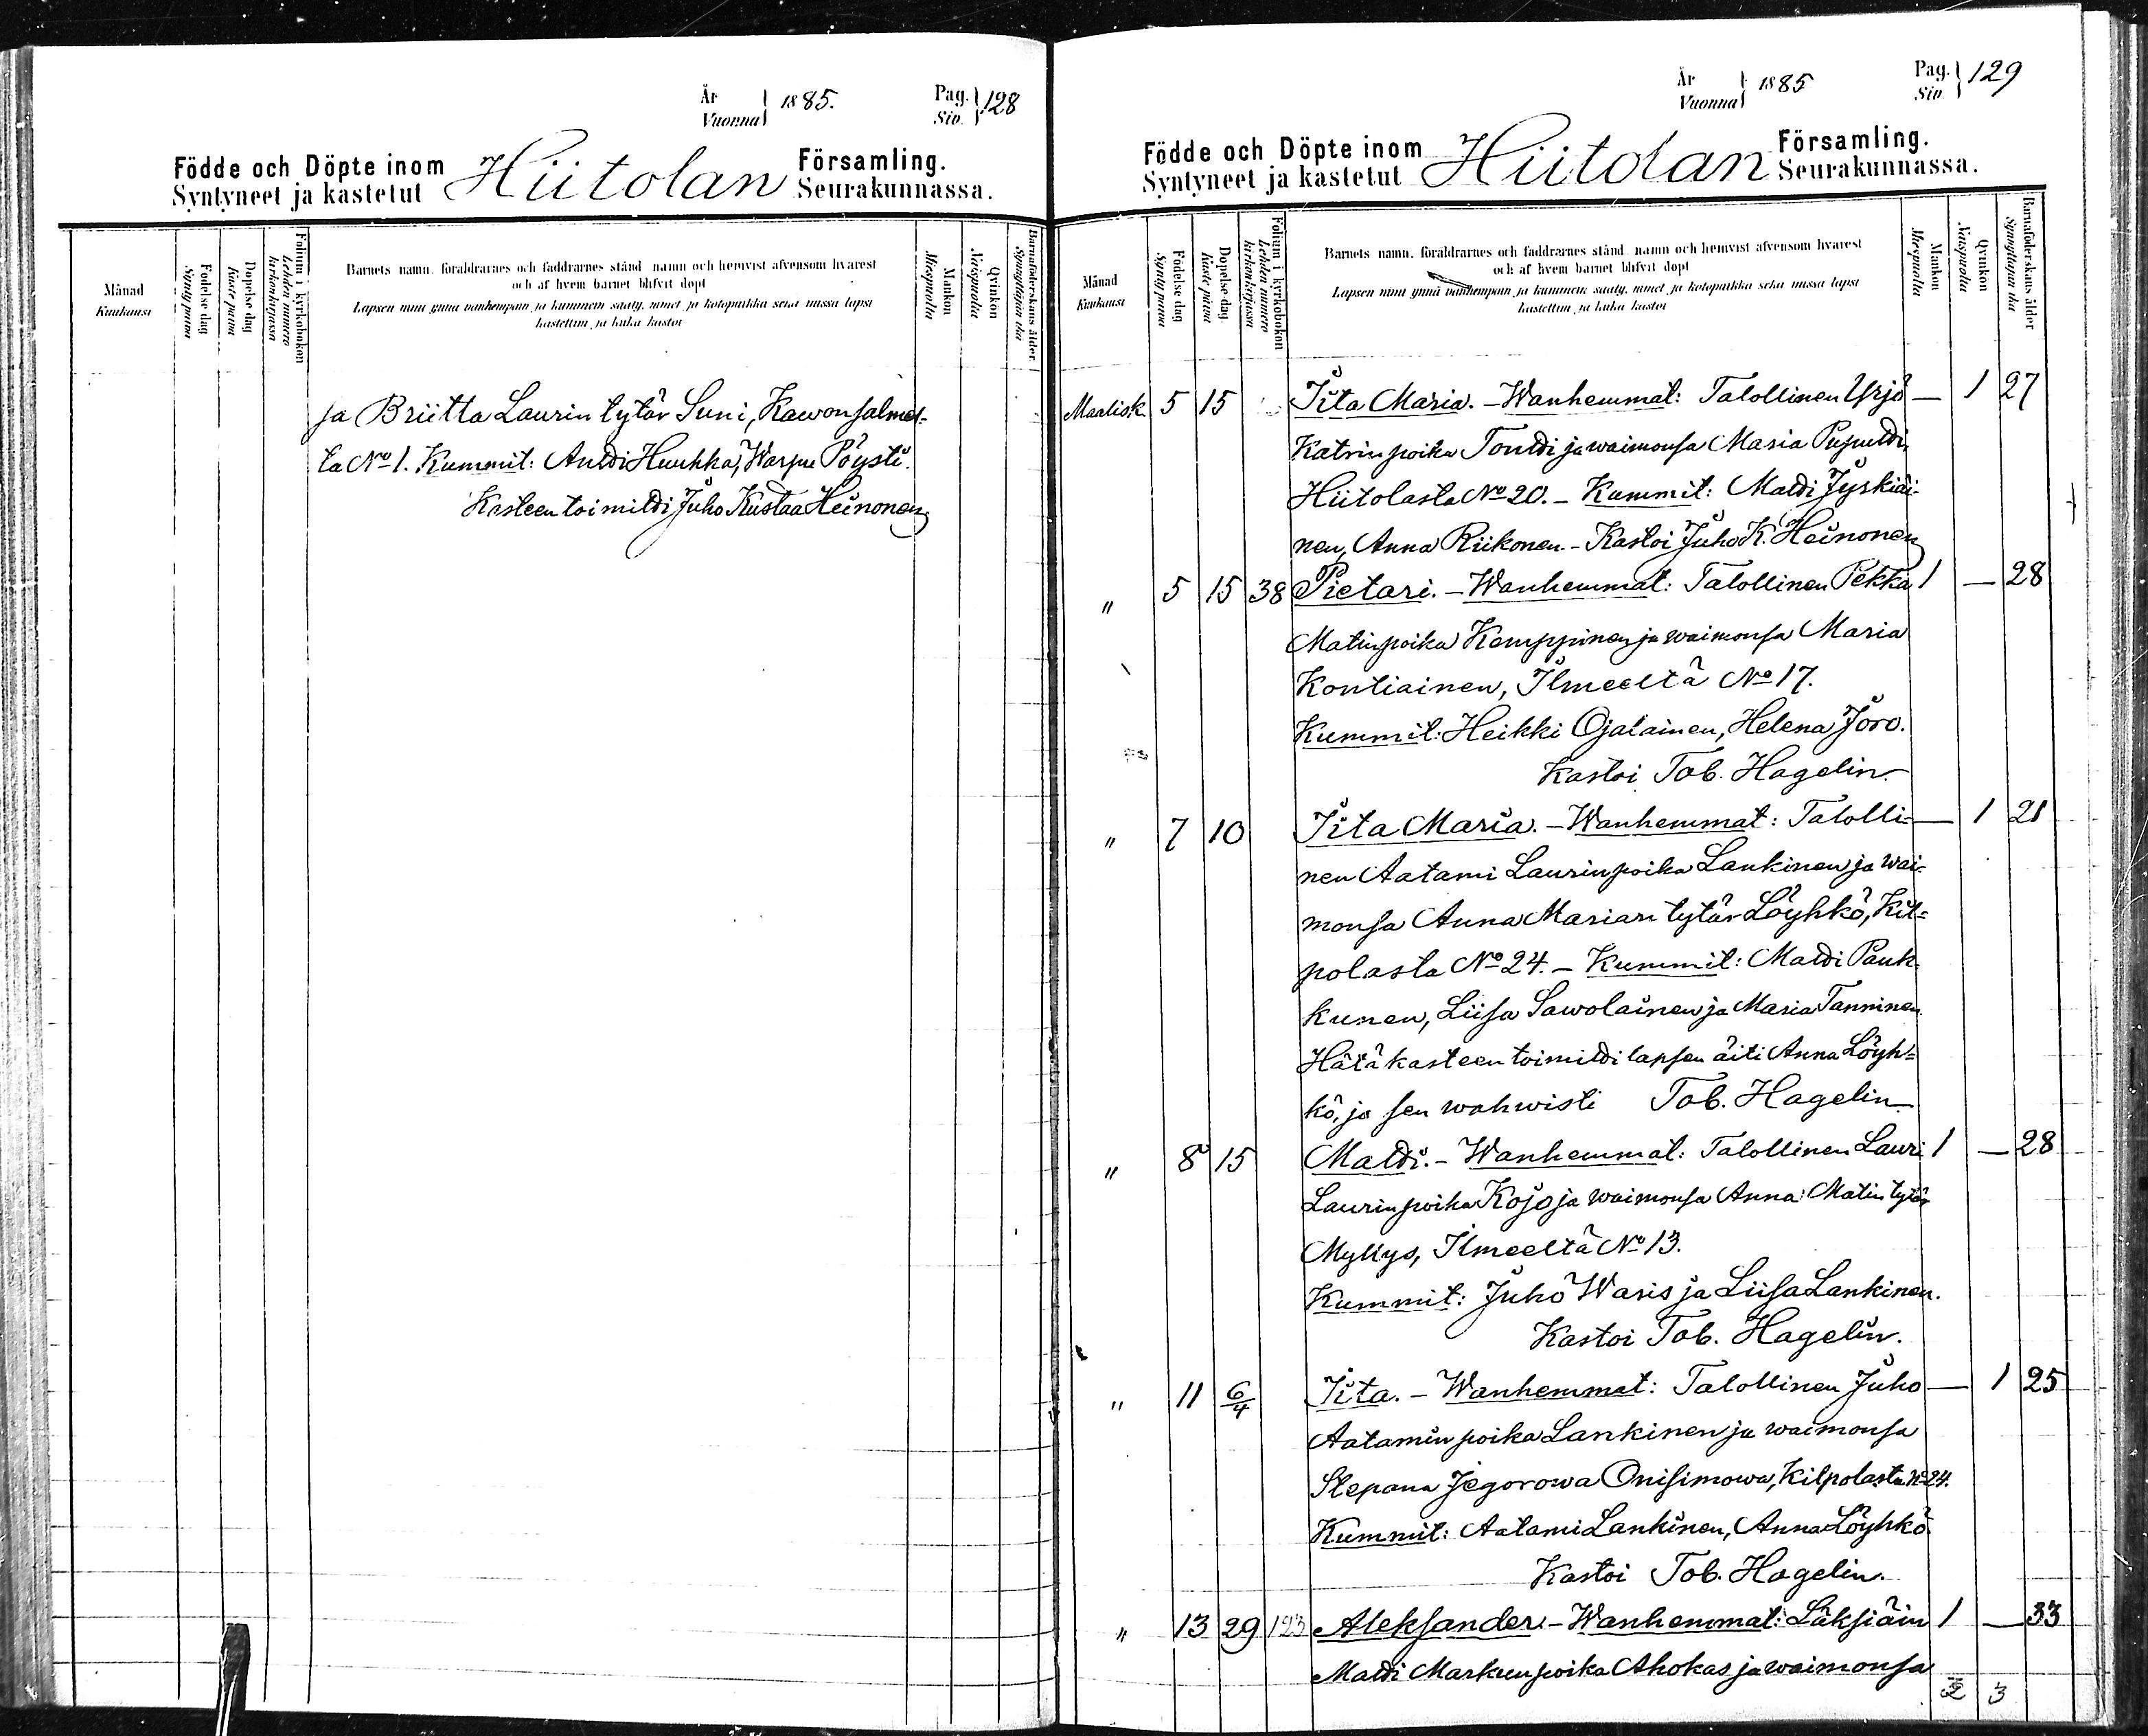 År
Vuonna } 1885.
Pag.
Siv. } 128
Födde och Döpte inom Hiitolan Församling.
Syntyneet ja kastetut Seurakunnassa.
Månad
Kuukausi
Födelse dag
Synty päivä
Döpelse dag
Kaste päivä
Folium i kyrkoboken
Lehden numero kirkonkirjassa
Barnets namn, föräldrarnes och faddrarnes stånd, namn och hemvist äfvensom hvarest
och af hvem barnet blifvit döpt
Lapsen nimi ynnä vanhempain ja kummein sääty, nimet ja kotopaikka sekä missä lapsi
kastettiin ja kuka kastoi
Mankön
Miespuolia
Qvinkön
Naispuolia
Barnaföderskans ålder
Synnyttäjän ikä
ja Briitta Laurin tytär Suni, Kawonsalmes-
ta No 1. Kummit: Antti Huuhka, Warpu Pöysti.
Kasteen toimitti Juho Kustaa Heinonen
År
Vuonna } 1885
Pag.
Siv. } 129
Födde och Döpte inom Hiitolan Församling.
Syntyneet ja kastetut Seurakunnassa.
Månad
Kuukausi
Födelse dag
Synty päivä
Döpelse dag
Kaste päivä
Folium i kyrkoboken
Lehden numero kirkonkirjassa
Barnets namn, föräldrarnes och faddrarnes stånd, namn och hemvist äfvensom hvarest
och af hvem barnet blifvit döpt
Lapsen nimi ynnä vanhempain ja kummein sääty, nimet ja kotopaikka sekä missä lapsi
kastettiin ja kuka kastoi
Mankön
Miespuolia
Qvinkön
Naispuolia
Barnaföderskans ålder
Synnyttäjän ikä
Maalisk. 5 15 Iita Maria. - Wanhemmat: Talollinen Yrjö — 1 27
Katrin poika Tontti ja waimonsa Maria Puputti,
Hiitolasta No 20. - Kummit: Matti Jyskiäi-
nen, Anna Riikonen. - Kastoi Juho K. Heinonen
" 5 15 38 Pietari. - Wanhemmat: Talollinen Pekka 1 — 28
Matinpoika Kemppinen ja waimonsa Maria
Kontiainen, Ilmeeltä No 17.
Kummit: Heikki Ojalainen, Helena Joro.
Kastoi Tob. Hagelin.
" 7 10 Iita Maria. - Wanhemmat: Talolli- — 1 21
nen Aatami Laurinpoika Lankinen ja wai-
monsa Anna Marian tytär Löyhkö, Kil-
polasta No 24. - Kummit: Matti Pauk-
kunen, Liisa Sawolainen ja Maria Tanninen
Hätäkasteen toimitti lapsen äiti Anna Löyh-
kö, ja sen wahwisti Tob. Hagelin.
" 8 15 Matti. - Wanhemmat: Talollinen Lauri 1 — 28
Laurinpoika Kojo ja waimonsa Anna Matin tytär
Myllys, Ilmeeltä No 13.
Kummit: Juho Waris ja Liisa Lankinen.
Kastoi Tob. Hagelin.
" 11 6/4 Iita. - Wanhemmat: Talollinen Juho — 1 25
Aatamin poika Lankinen ja waimonsa
Stepana Jegorowa Onisimowa, Kilpolasta No 24.
Kummit: Aatami Lankinen, Anna Löyhkö
Kastoi Tob. Hagelin.
" 13 29 123 Aleksander. - Wanhemmat: Läksiäin 1 — 33
Matti Markunpoika Ahokas ja waimonsa
3